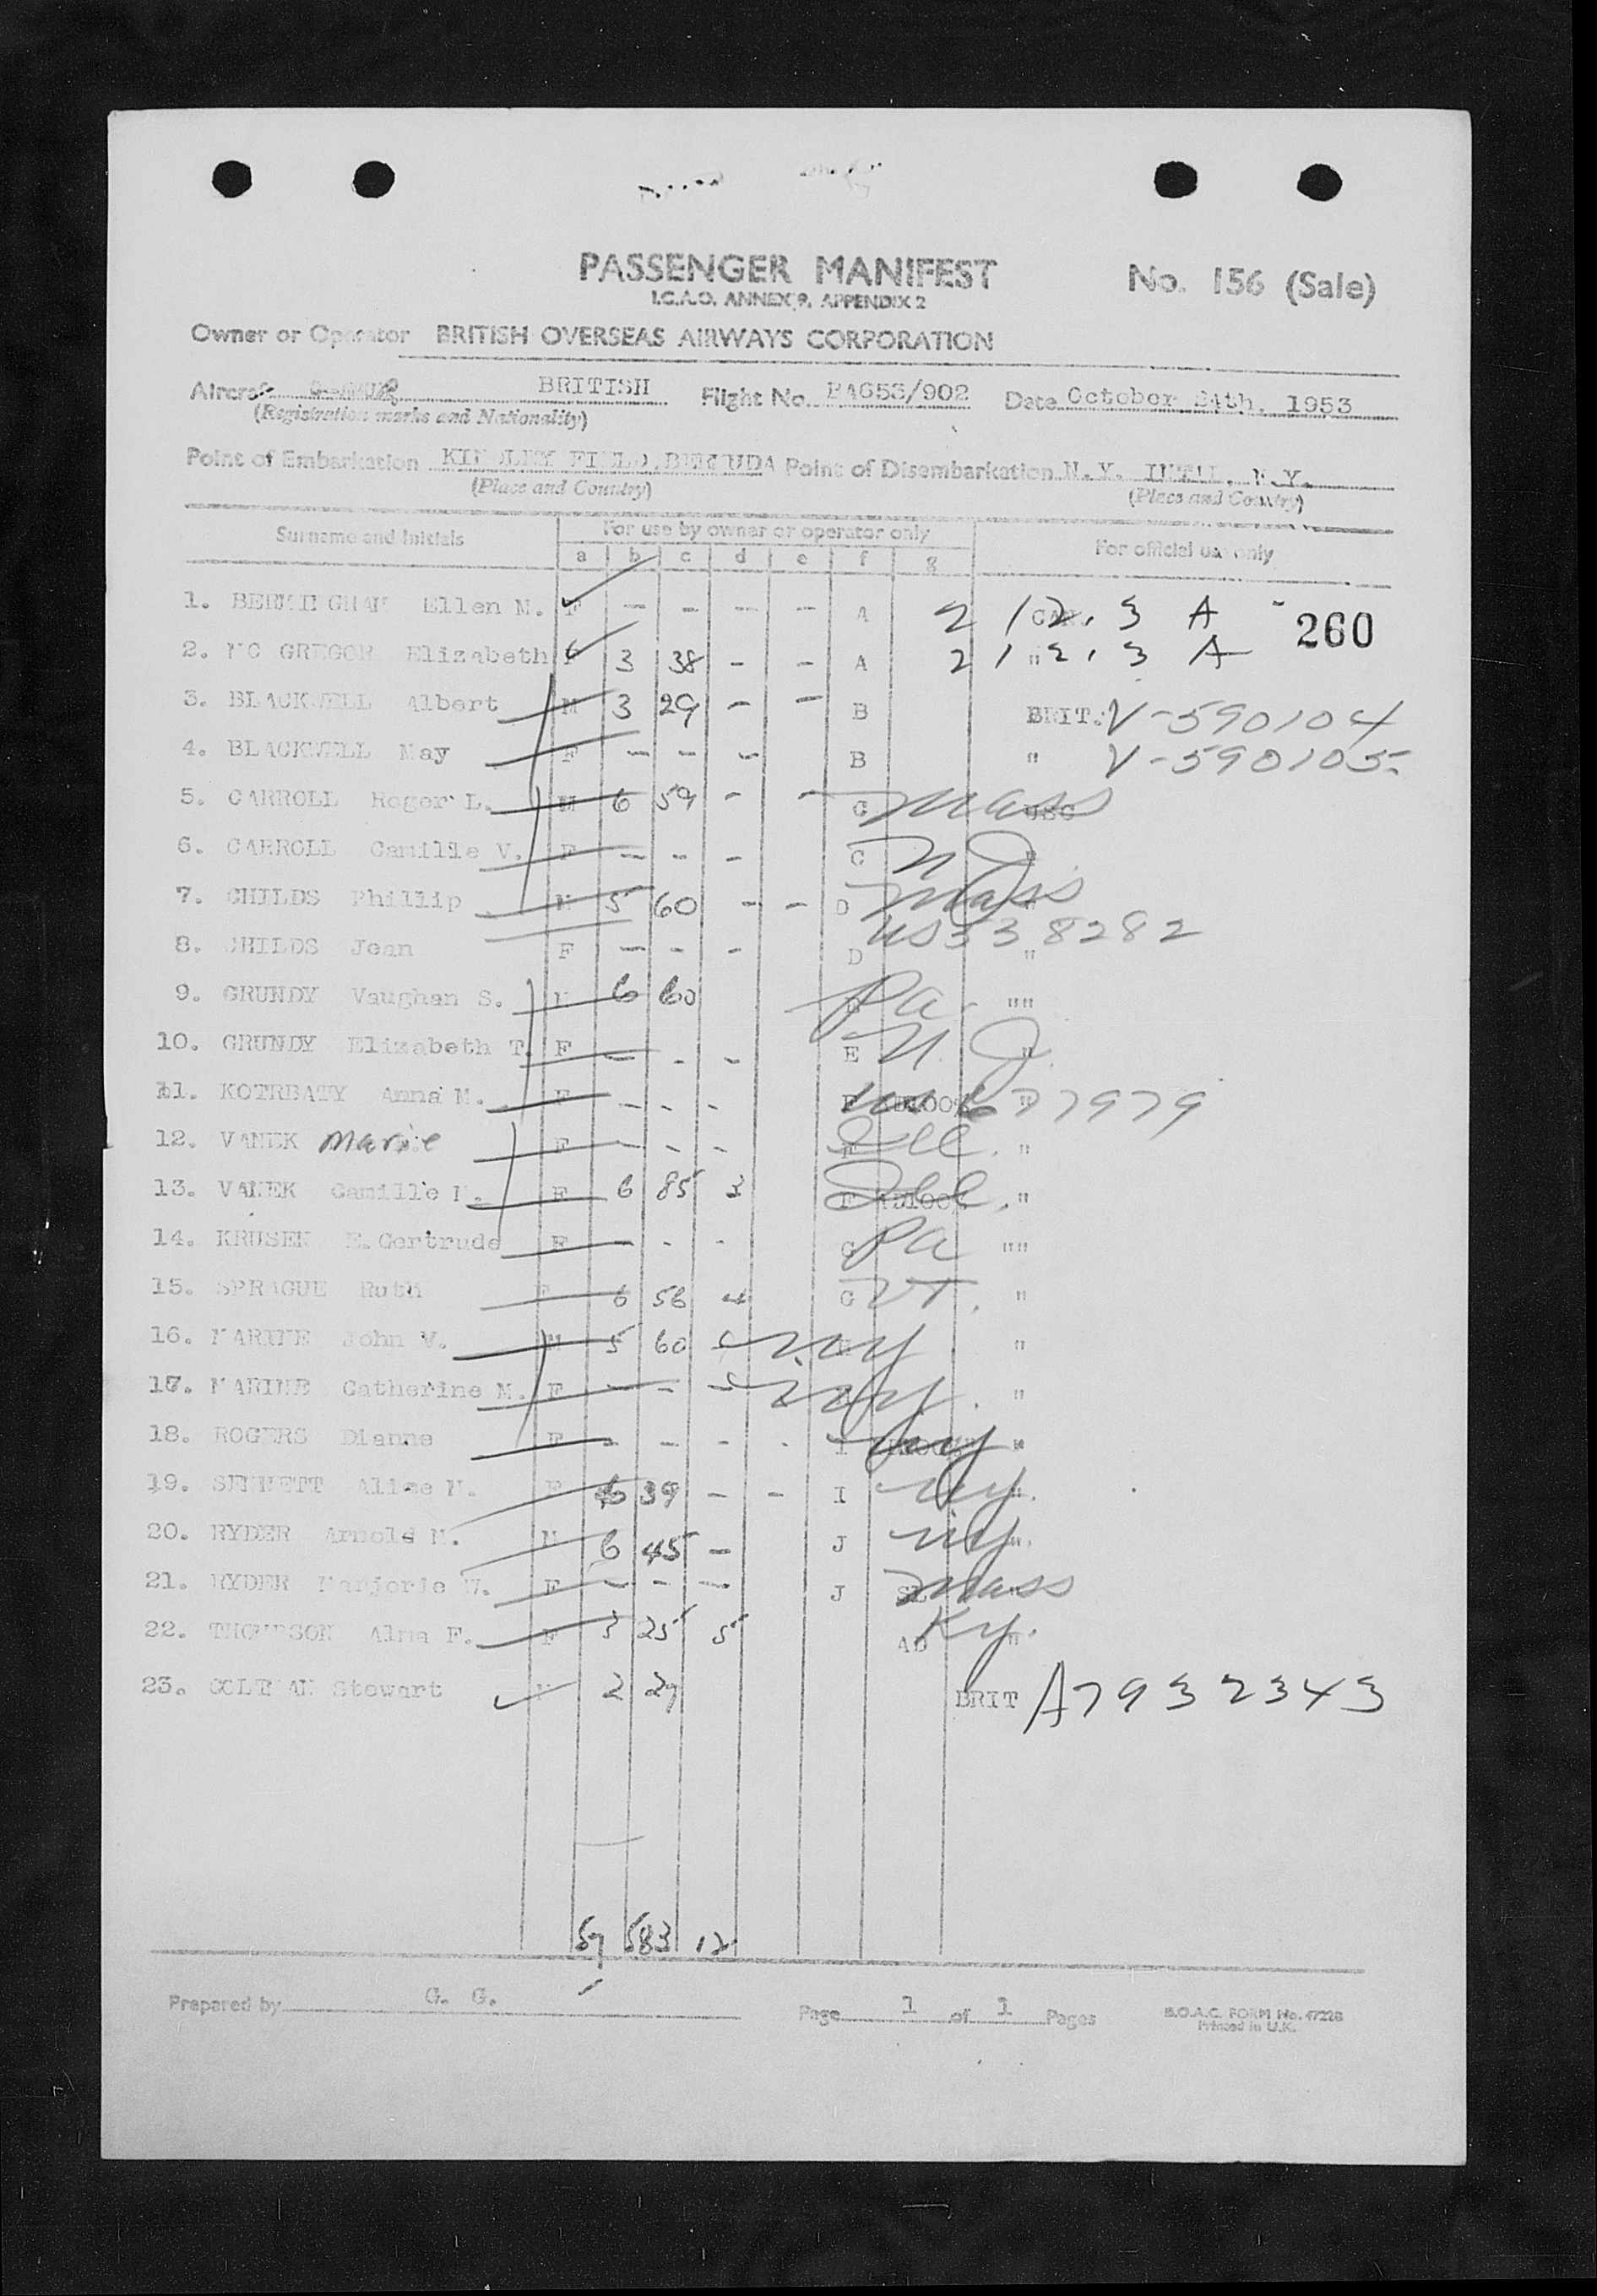 PASSENGER MANIFEST
No. 156 (Sale)
I.C.A.O. ANNEX 9, APPENDIX 2
Owner or Operator BRITISH OVERSEAS AIRWAYS CORPORATION
Aircraft BRITISH Flight No. BA653/902 Date October 24th, 1953
(Registration marks and Nationality)
Point of Embarkation KINDLEY FIELD, BERMUDA Point of Disembarkation N.Y. INTNL, N.Y.
(Place and Country) (Place and Country)
Surname and Initials For use by owner or operator only For official use only
a b c d e f g
1. BERMINGHAM Ellen M. F - - - - A CAN. 212.3 A 260
2. MC GREGOR Elizabeth F 3 38 - - A " 212.3 A
3. BLACKWELL Albert M 3 29 - - B BRIT. V-590104
4. BLACKWELL May F - - - B " V-590105
5. CARROLL Roger L. M 6 59 - - C Mass USC
6. CARROLL Camille V. F - - - C N J "
7. CHILDS Phillip M 5 60 - - D Mass "
8. CHILDS Jean F - - - D US338282 "
9. GRUNDY Vaughan S. M 6 60 E Pa. ""
10. GRUNDY Elizabeth T. F - - - E N. J. "
11. KOTRBATY Anna M. F - - - F 677979 "
12. VANEK Marie F - - - F Ill. "
13. VANEK Camille M. F 6 85 3 F Ill. "
14. KRUSEN E. Gertrude F - - - G Pa ""
15. SPRAGUE Ruth F 6 56 4 G VT. "
16. MARINE John V. M 5 60 - NY "
17. MARINE Catherine M. F - - - NY. "
18. ROGERS Dianne F - - - - I NY "
19. SENNETT Alice M. F 6 39 - - I NY. "
20. RYDER Arnold M. M 6 45 - J NY "
21. RYDER Marjorie W. F - - - J Mass "
22. THOMPSON Alma F. F 3 25 5 AD Ky. "
23. COLTMAN Stewart M 2 29 BRIT A7932343
57 583 12
Prepared by G. G. Page 1 of 1 Pages B.O.A.C. FORM No. 4722B
Printed in U.K.